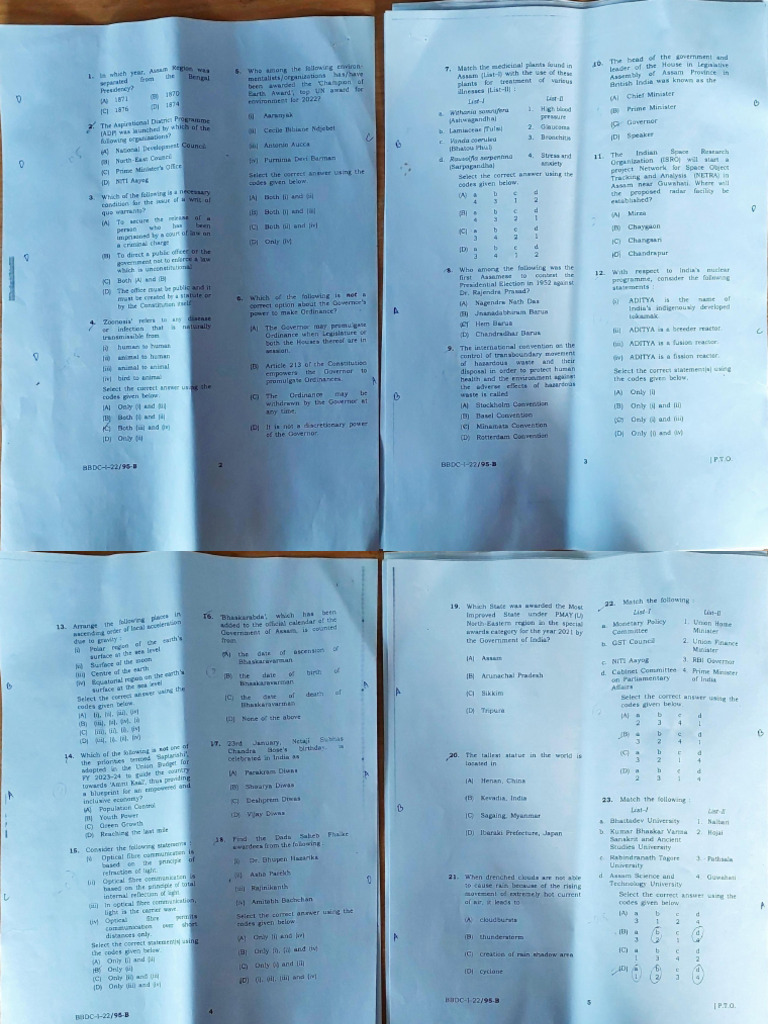 1. In which year, Assam Region was
separated from the Bengal
Presidency?
(A) 1871 (B) 1870
(C) 1876 (D) 1874
2. The Aspirational District Programme
(ADP) was launched by which of the
following organizations?
(A) National Development Council
(B) North-East Council
(C) Prime Minister's Office
(D) NITI Aayog
3. Which of the following is a necessary
condition for the issue of a writ of
quo warranto?
(A) To secure the release of a
person who has been
imprisoned by a court of law on
a criminal charge
(B) To direct a public officer or the
government not to enforce a law
which is unconstitutional
(C) Both (A) and (B)
(D) The office must be public and it
must be created by a statute or
by the Constitution itself
4. 'Zoonosis' refers to any disease
or infection that is naturally
transmissible from
(i) human to human
(ii) animal to human
(iii) animal to animal
(iv) bird to animal
Select the correct answer using the
codes given below.
(A) Only (i) and (ii)
(B) Both (i) and (ii)
(C) Both (iii) and (iv)
(D) Only (ii)
5. Who among the following environ-
mentalists/organizations has/have
been awarded the 'Champion of
Earth Award', top UN award for
environment for 2022?
(i) Aaranyak
(ii) Cecile Bibiane Ndjebet
(iii) Antonio Aucca
(iv) Purnima Devi Barman
Select the correct answer using the
codes given below.
(A) Both (i) and (ii)
(B) Both (i) and (iii)
(C) Both (ii) and (iv)
(D) Only (iv)
6. Which of the following is not a
correct option about the Governor's
power to make Ordinance?
(A) The Governor may promulgate
Ordinance when Legislature or
both the Houses thereof are in
session.
(B) Article 213 of the Constitution
empowers the Governor to
promulgate Ordinances.
(C) The Ordinance may be
withdrawn by the Governor at
any time.
(D) It is not a discretionary power
of the Governor.
BBDC-1-22/95-B 2
7. Match the medicinal plants found in
Assam (List-I) with the use of these
plants for treatment of various
illnesses (List-II) :
List-I List-II
a. Withania somnifera 1. High blood
(Ashwagandha) pressure
b. Lamiaceae (Tulsi) 2. Glaucoma
c. Vanda coerulea 3. Bronchitis
(Bhatou Phul)
d. Rauvolfia serpentina 4. Stress and
(Sarpagandha) anxiety
Select the correct answer using the
codes given below.
(A) a b c d
4 3 1 2
(B) a b c d
4 3 2 1
(C) a b c d
3 4 2 1
(D) a b c d
3 4 1 2
8. Who among the following was the
first Assamese to contest the
Presidential Election in 1952 against
Dr. Rajendra Prasad?
(A) Nagendra Nath Das
(B) Jnanadabhiram Barua
(C) Hem Barua
(D) Chandradhar Barua
9. The international convention on the
control of transboundary movement
of hazardous waste and their
disposal in order to protect human
health and the environment against
the adverse effects of hazardous
waste is called
(A) Stockholm Convention
(B) Basel Convention
(C) Minamata Convention
(D) Rotterdam Convention
10. The head of the government and
leader of the House in Legislative
Assembly of Assam Province in
British India was known as the
(A) Chief Minister
(B) Prime Minister
(C) Governor
(D) Speaker
11. The Indian Space Research
Organization (ISRO) will start a
project Network for Space Object
Tracking and Analysis (NETRA) in
Assam near Guwahati. Where will
the proposed radar facility be
established?
(A) Mirza
(B) Chaygaon
(C) Changsari
(D) Chandrapur
12. With respect to India's nuclear
programme, consider the following
statements :
(i) ADITYA is the name of
India's indigenously developed
tokamak.
(ii) ADITYA is a breeder reactor.
(iii) ADITYA is a fusion reactor.
(iv) ADITYA is a fission reactor.
Select the correct statement(s) using
the codes given below.
(A) Only (i)
(B) Only (i) and (ii)
(C) Only (i) and (iii)
(D) Only (i) and (iv)
BBDC-1-22/95-B 3 [ P.T.O.
13. Arrange the following places in
ascending order of local acceleration
due to gravity :
(i) Polar region of the earth's
surface at the sea level
(ii) Surface of the moon
(iii) Centre of the earth
(iv) Equatorial region on the earth's
surface at the sea level
Select the correct answer using the
codes given below.
(A) (i), (ii), (iii), (iv)
(B) (iii), (ii), (iv), (i)
(C) (iii), (ii), (i), (iv)
(D) (iii), (i), (ii), (iv)
14. Which of the following is not one of
the priorities termed 'Saptarishi',
adopted in the Union Budget for
FY 2023-24 to guide the country
towards 'Amrit Kaal', thus providing
a blueprint for an empowered and
inclusive economy?
(A) Population Control
(B) Youth Power
(C) Green Growth
(D) Reaching the last mile
15. Consider the following statements :
(i) Optical fibre communication is
based on the principle of
refraction of light.
(ii) Optical fibre communication is
based on the principle of total
internal reflection of light.
(iii) In optical fibre communication,
light is the carrier wave
(iv) Optical fibre permits
communication over short
distances only.
Select the correct statement(s) using
the codes given below.
(A) Only (i) and (ii)
(B) Only (ii)
(C) Only (ii) and (iii)
(D) Only (iii) and (iv)
16. 'Bhaskarabda', which has been
added to the official calendar of the
Government of Assam, is counted
from
(A) the date of ascension of
Bhaskaravarman
(B) the date of birth of
Bhaskaravarman
(C) the date of death of
Bhaskaravarman
(D) None of the above
17. '23rd January, Netaji Subhas
Chandra Bose's birthday, is
celebrated in India as
(A) Parakram Diwas
(B) Shaurya Diwas
(C) Deshprem Diwas
(D) Vijay Diwas
18. Find the Dada Saheb Phalke
awardees from the following
(i) Dr. Bhupen Hazarika
(ii) Asha Parekh
(iii) Rajinikanth
(iv) Amitabh Bachchan
Select the correct answer using the
codes given below.
(A) Only (i) and (iv)
(B) Only (i), (ii) and (iv)
(C) Only (i) and (ii)
(D) (i), (ii), (iii) and (iv)
BBDC-1-22/95-B 4
19. Which State was awarded the Most
Improved State under PMAY(U)
North-Eastern region in the special
awards category for the year 2021 by
the Government of India?
(A) Assam
(B) Arunachal Pradesh
(C) Sikkim
(D) Tripura
20. The tallest statue in the world is
located in
(A) Henan, China
(B) Kevadia, India
(C) Sagaing, Myanmar
(D) Ibaraki Prefecture, Japan
21. When drenched clouds are not able
to cause rain because of the rising
movement of extremely hot current
of air, it leads to
(A) cloudbursts
(B) thunderstorm
(C) creation of rain shadow area
(D) cyclone
22. Match the following :
List-I List-II
a. Monetary Policy 1. Union Home
Committee Minister
b. GST Council 2. Union Finance
Minister
c. NITI Aayog 3. RBI Governor
d. Cabinet Committee 4. Prime Minister
on Parliamentary of India
Affairs
Select the correct answer using the
codes given below.
(A) a b c d
2 3 4 1
(B) a b c d
3 2 4 1
(C) a b c d
3 2 1 4
(D) a b c d
2 3 1 4
23. Match the following :
List-I List-II
a. Bhattadev University 1. Nalbari
b. Kumar Bhaskar Varma 2. Hojai
Sanskrit and Ancient
Studies University
c. Rabindranath Tagore 3. Pathsala
University
d. Assam Science and 4. Guwahati
Technology University
Select the correct answer using the
codes given below.
(A) a b c d
3 1 2 4
(B) a b c d
3 2 1 4
(C) a b c d
1 3 4 2
(D) a b c d
1 2 3 4
BBDC-1-22/95-B 5 [ P.T.O.